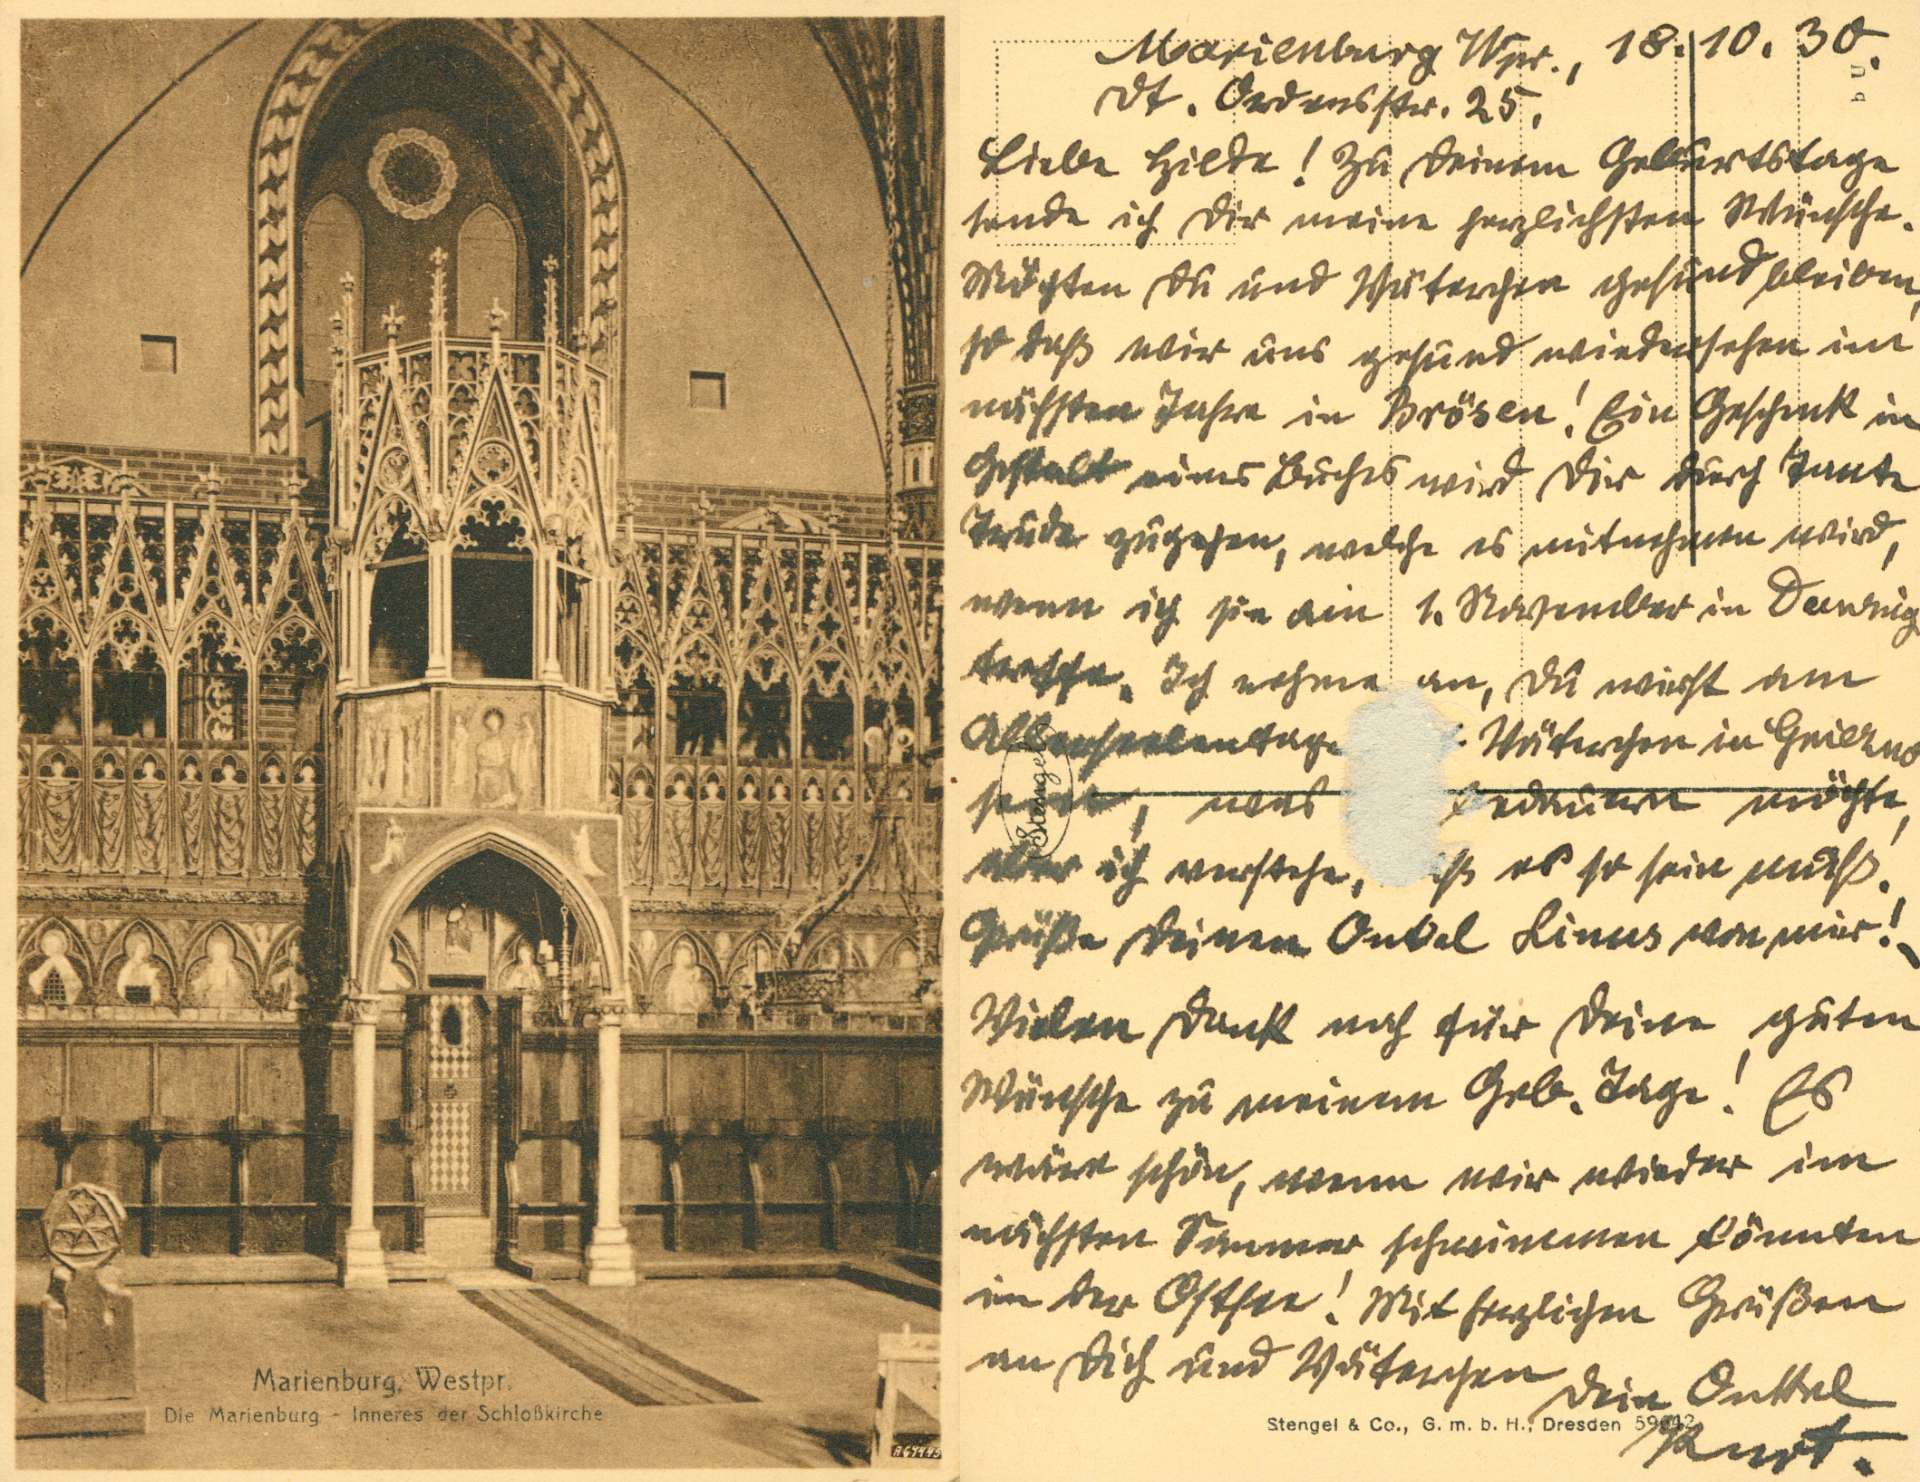 Marienburg, Westpr.
Die Marienburg - Inneres der Schloßkirche
Marienburg Wpr., 18.10.30.
Dt. Ordensstr. 25.
Liebe Hilde! Zu Deinem Geburtstage
sende ich Dir meine herzlichsten Wünsche.
Möchten Du und Väterchen gesund bleiben,
so daß wir uns gesund wiedersehen im
nächsten Jahre in Brösen! Ein Geschenk in
Gestalt eines Buches wird Dir durch Tante
Trude zugehen, welche es mitnehmen wird,
wenn ich sie am 1. November in Danzig
treffe. Ich nehme an, Du wirst am
Allerseelentage Väterchen in
sein, was bedauern möchte,
aber ich verstehe, daß es so sein muß.
Grüße Deinen Onkel Linus von mir!
Vielen Dank noch für Deine guten
Wünsche zu meinem Geb. Tage! Es
wäre schön, wenn wir wieder im
nächsten Sommer schwimmen könnten
in der Ostsee! Mit herzlichen Grüßen
an Dich und Väterchen
Dein Onkel
Kurt.
Stengel & Co., G. m. b. H., Dresden
Stengel